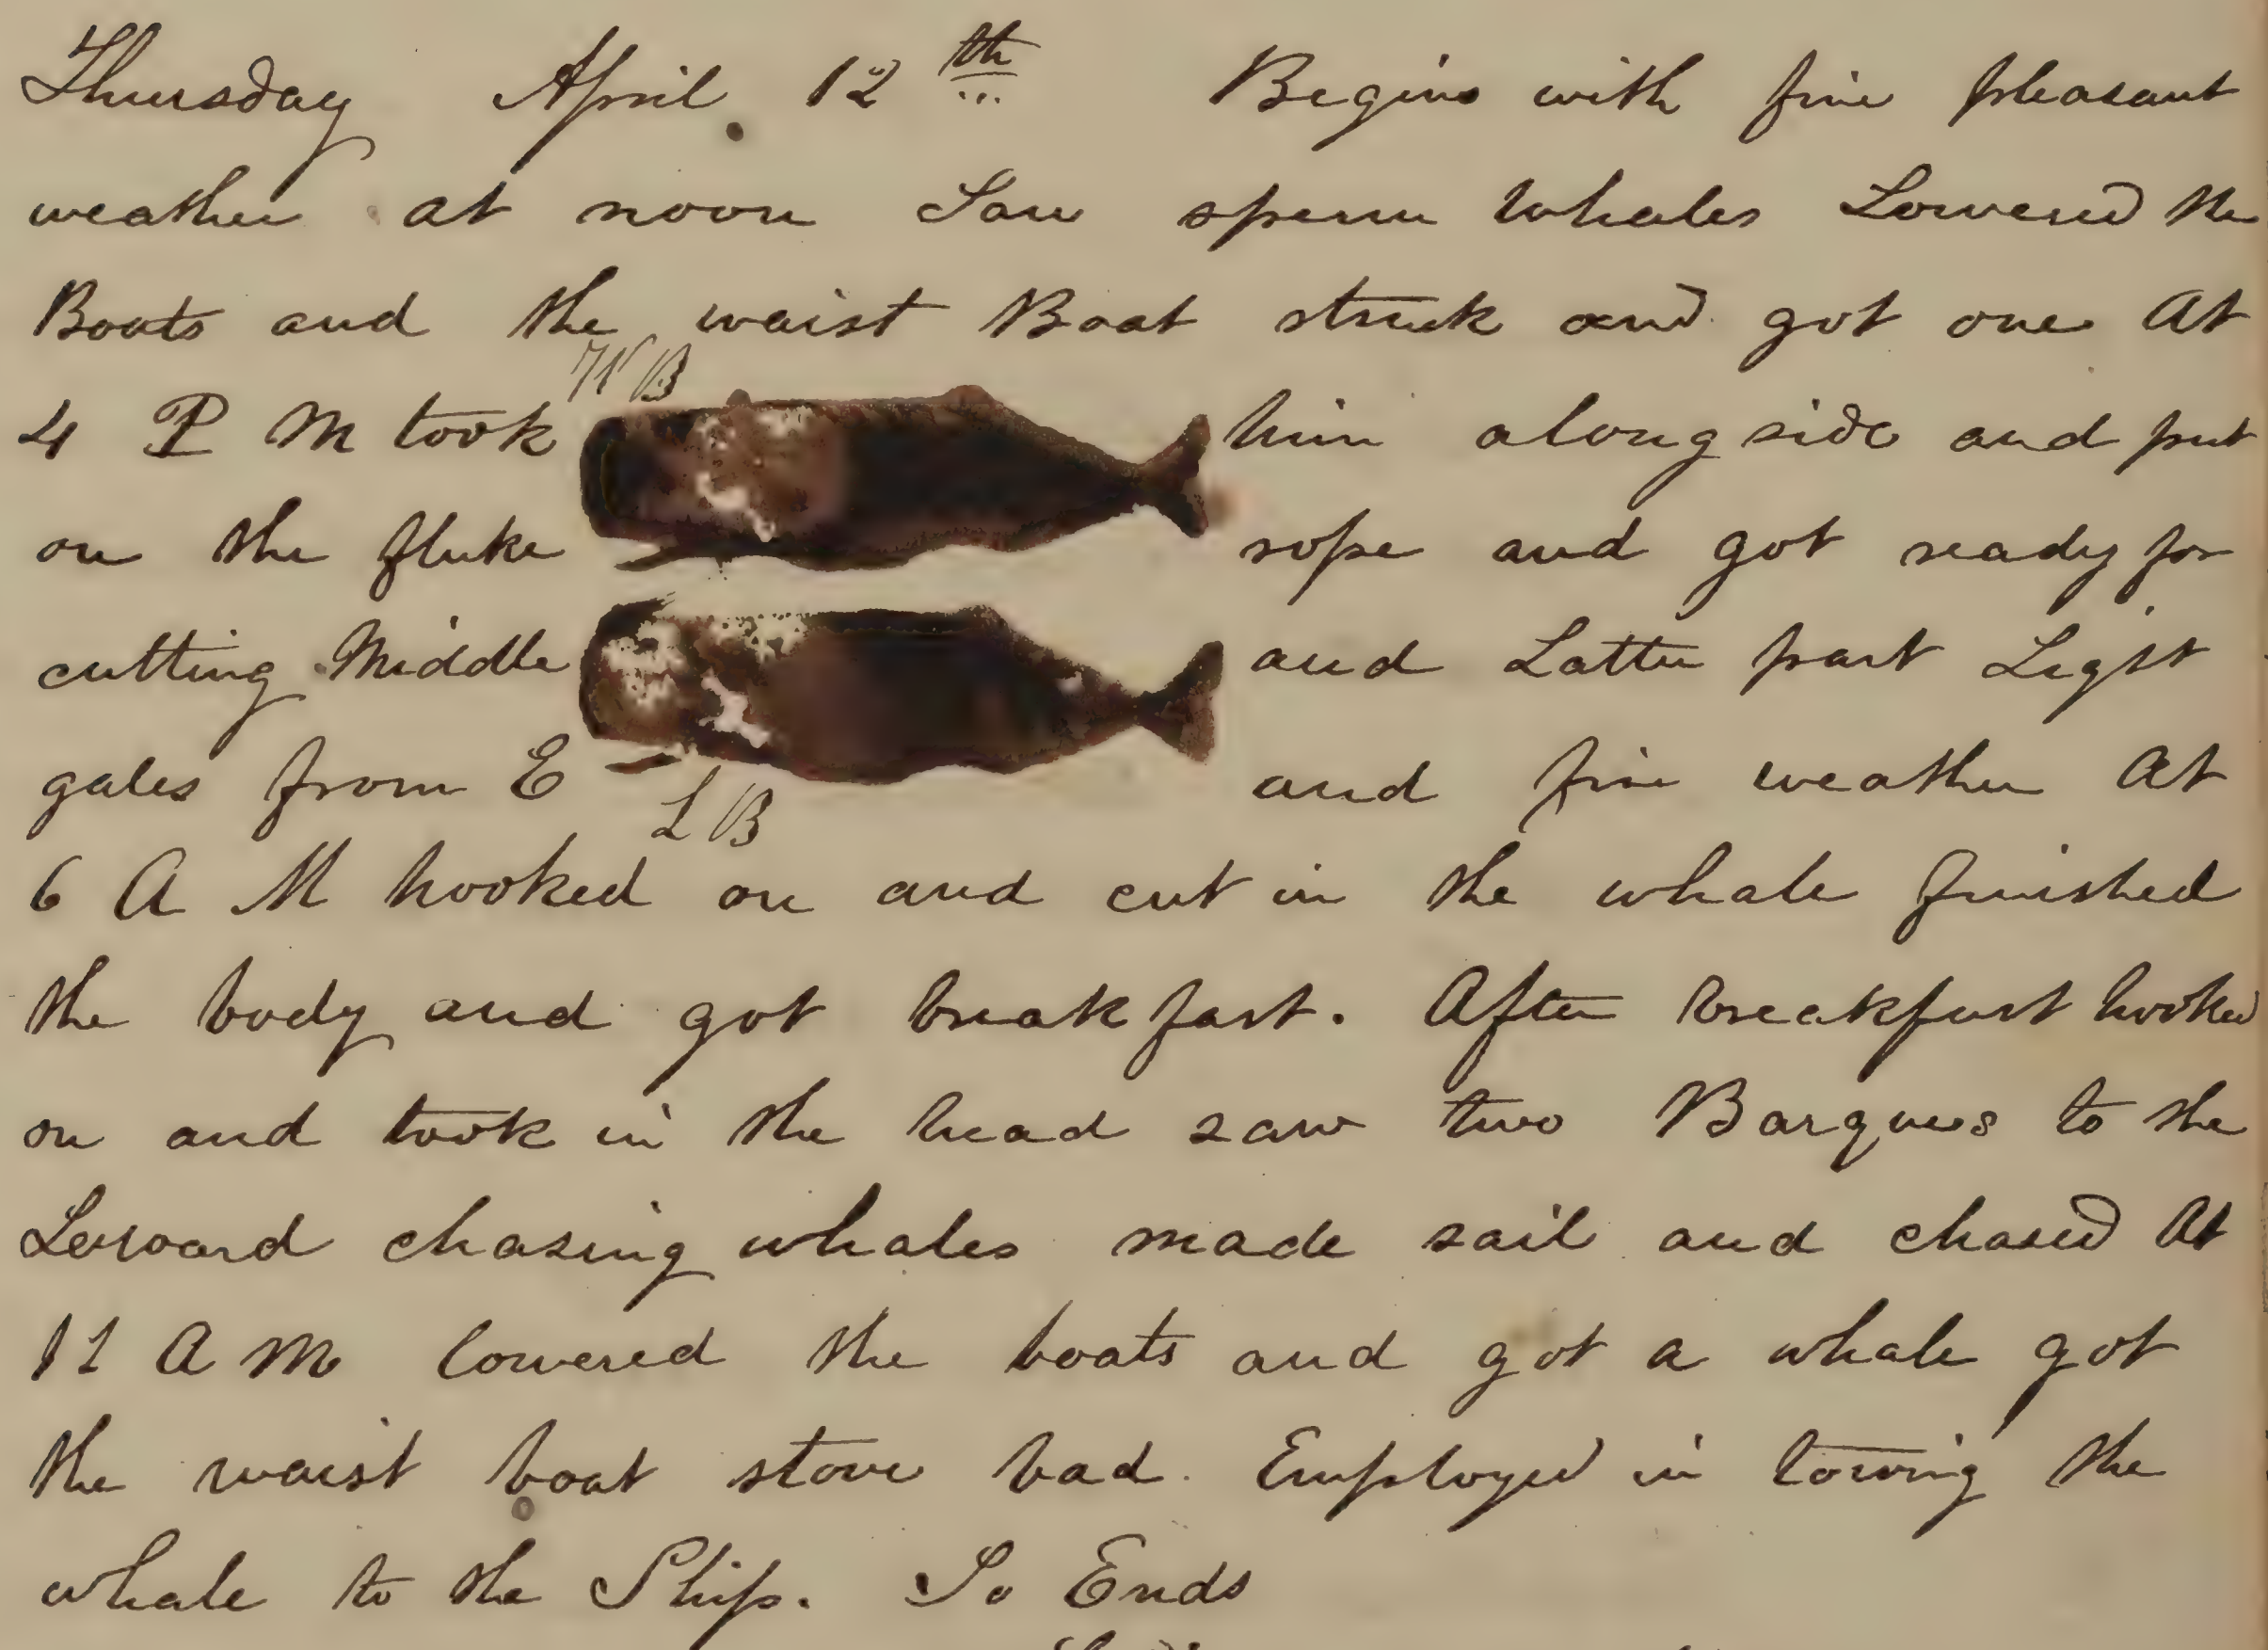 Thursday April 12th Begins with fine pleasant
weather at noon Saw sperm whales Lowered the
Boats and the waist Boat struck and got one At
W B
4 P M took him alongside and put
on the fluke rope and got ready for
cutting Middle and Latter part Light
gales from E and fine weather At
L B
6 A M hooked on and cut in the whale finished
the body and got breakfast. After breakfast hooked
on and took in the head saw two Barques to the
Leward chasing whales made sail and chased At
11 A M lowered the boats and got a whale got
the waist boat stove bad. Employed in towing the
whale to the Ship. So Ends